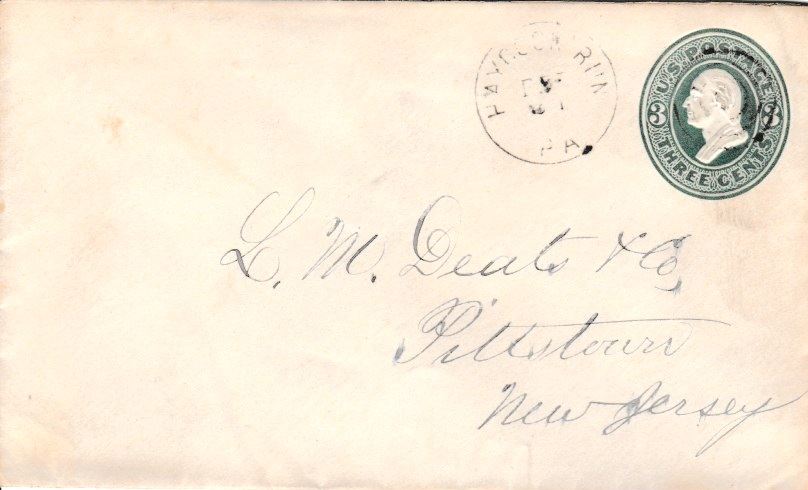 HAYCOCK RUN
PA
U.S. POSTAGE
3 3
THREE CENTS
L. M. Deats & Co,
Pittstown
New Jersey